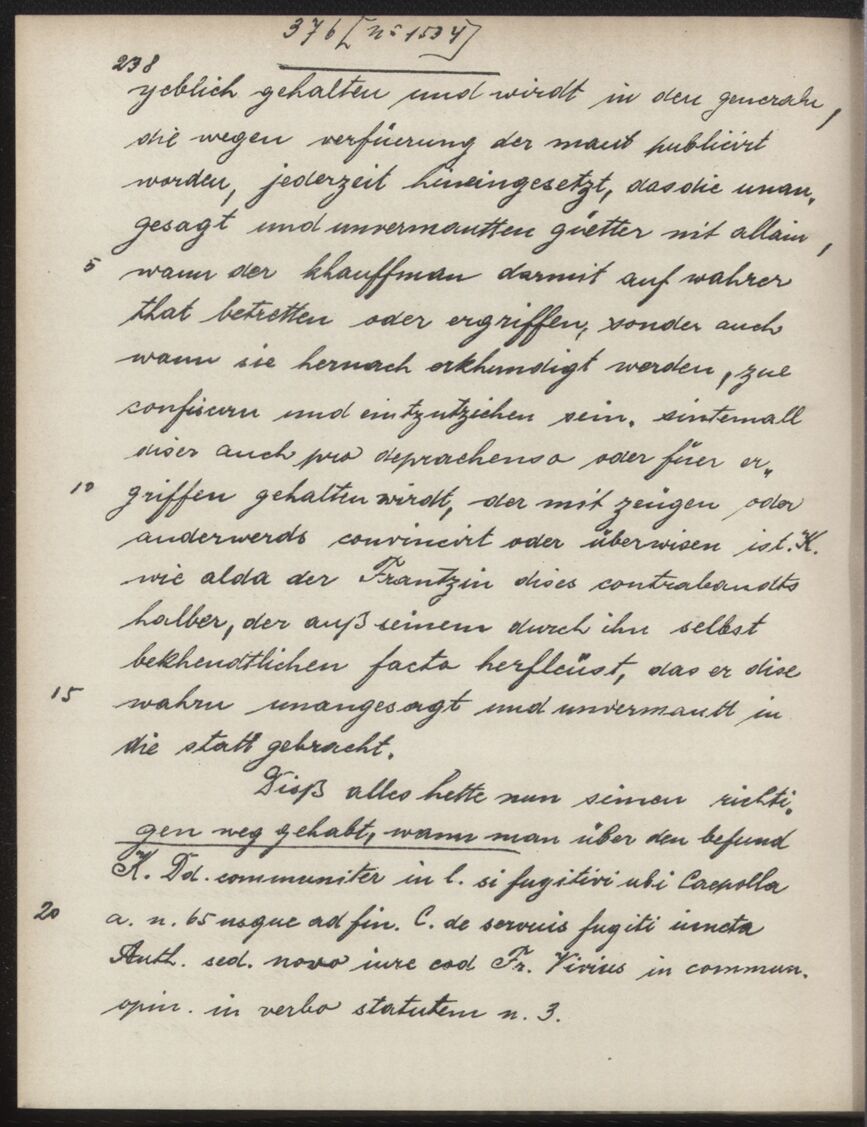 376 [nº 1534]
238
yeblich gehalten und wirdt in den generaln,
die wegen verfüerung der maut publicirt
worden, jederzeit hineingesetzt, das die unan„
gesagt und unvermautten güetter nit allain,
5 wann der khauffman darmit auf wahrer
that betretten oder ergriffen, sonder auch
wann sie hernach erkhundigt werden, zue
confiscirn und eintzutziehen sein. sintemall
diser auch pro deprachenso oder füer er„
10 griffen gehalten wirdt, der mit zeügen oder
anderwerds convincirt oder überwisen ist. K.
wie alda der Frantzin dises contrabandts
halber, der auß seinem durch ihn selbst
bekhendtlichen facto herfleüst, das er dise
15 wahrn unangesagt und unvermautt in
die statt gebracht.
Diß alles hette nun seinen richti„
gen weg gehabt, wann man über den befund
K. Dd. communiter in l. si fugitivi ubi Caepolla
20 a. n. 65 usque ad fin. C. de servuis fugiti iuncta
Auth. sed. novo iure eod Fr. Vivius in commun.
opin. in verbo statutem n. 3.